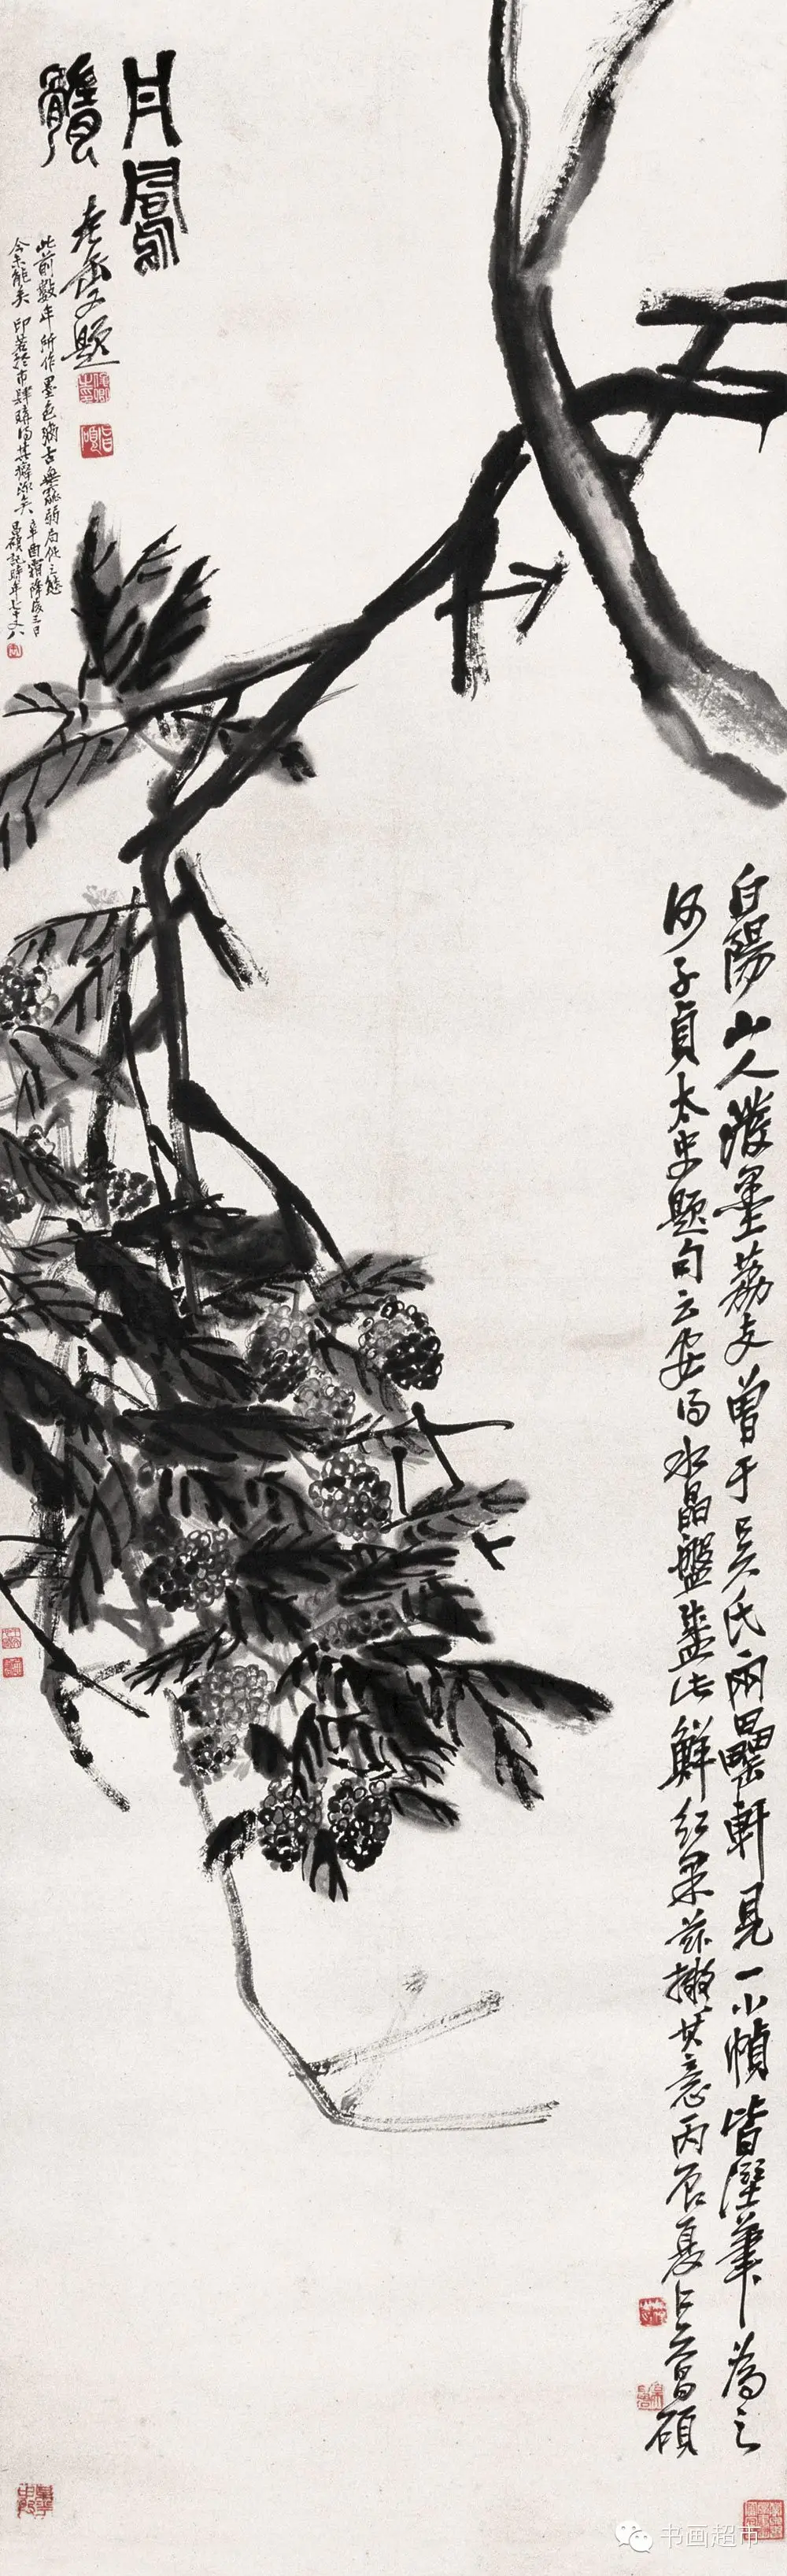 丹鳳
髓
老缶又題
此前數年所作墨色頗古無痿弱局促之態
今未能矣 印若於市肆購得其癖深矣 辛酉霜降後三日
昌碩記時年七十又八
白陽山人潑墨荔支曾于吳氏兩罍軒見一小幀皆溼筆為之
何子貞太史題句云安得水晶盤盛此鮮紅果茲擬其意丙辰夏 吳昌碩
书画超市